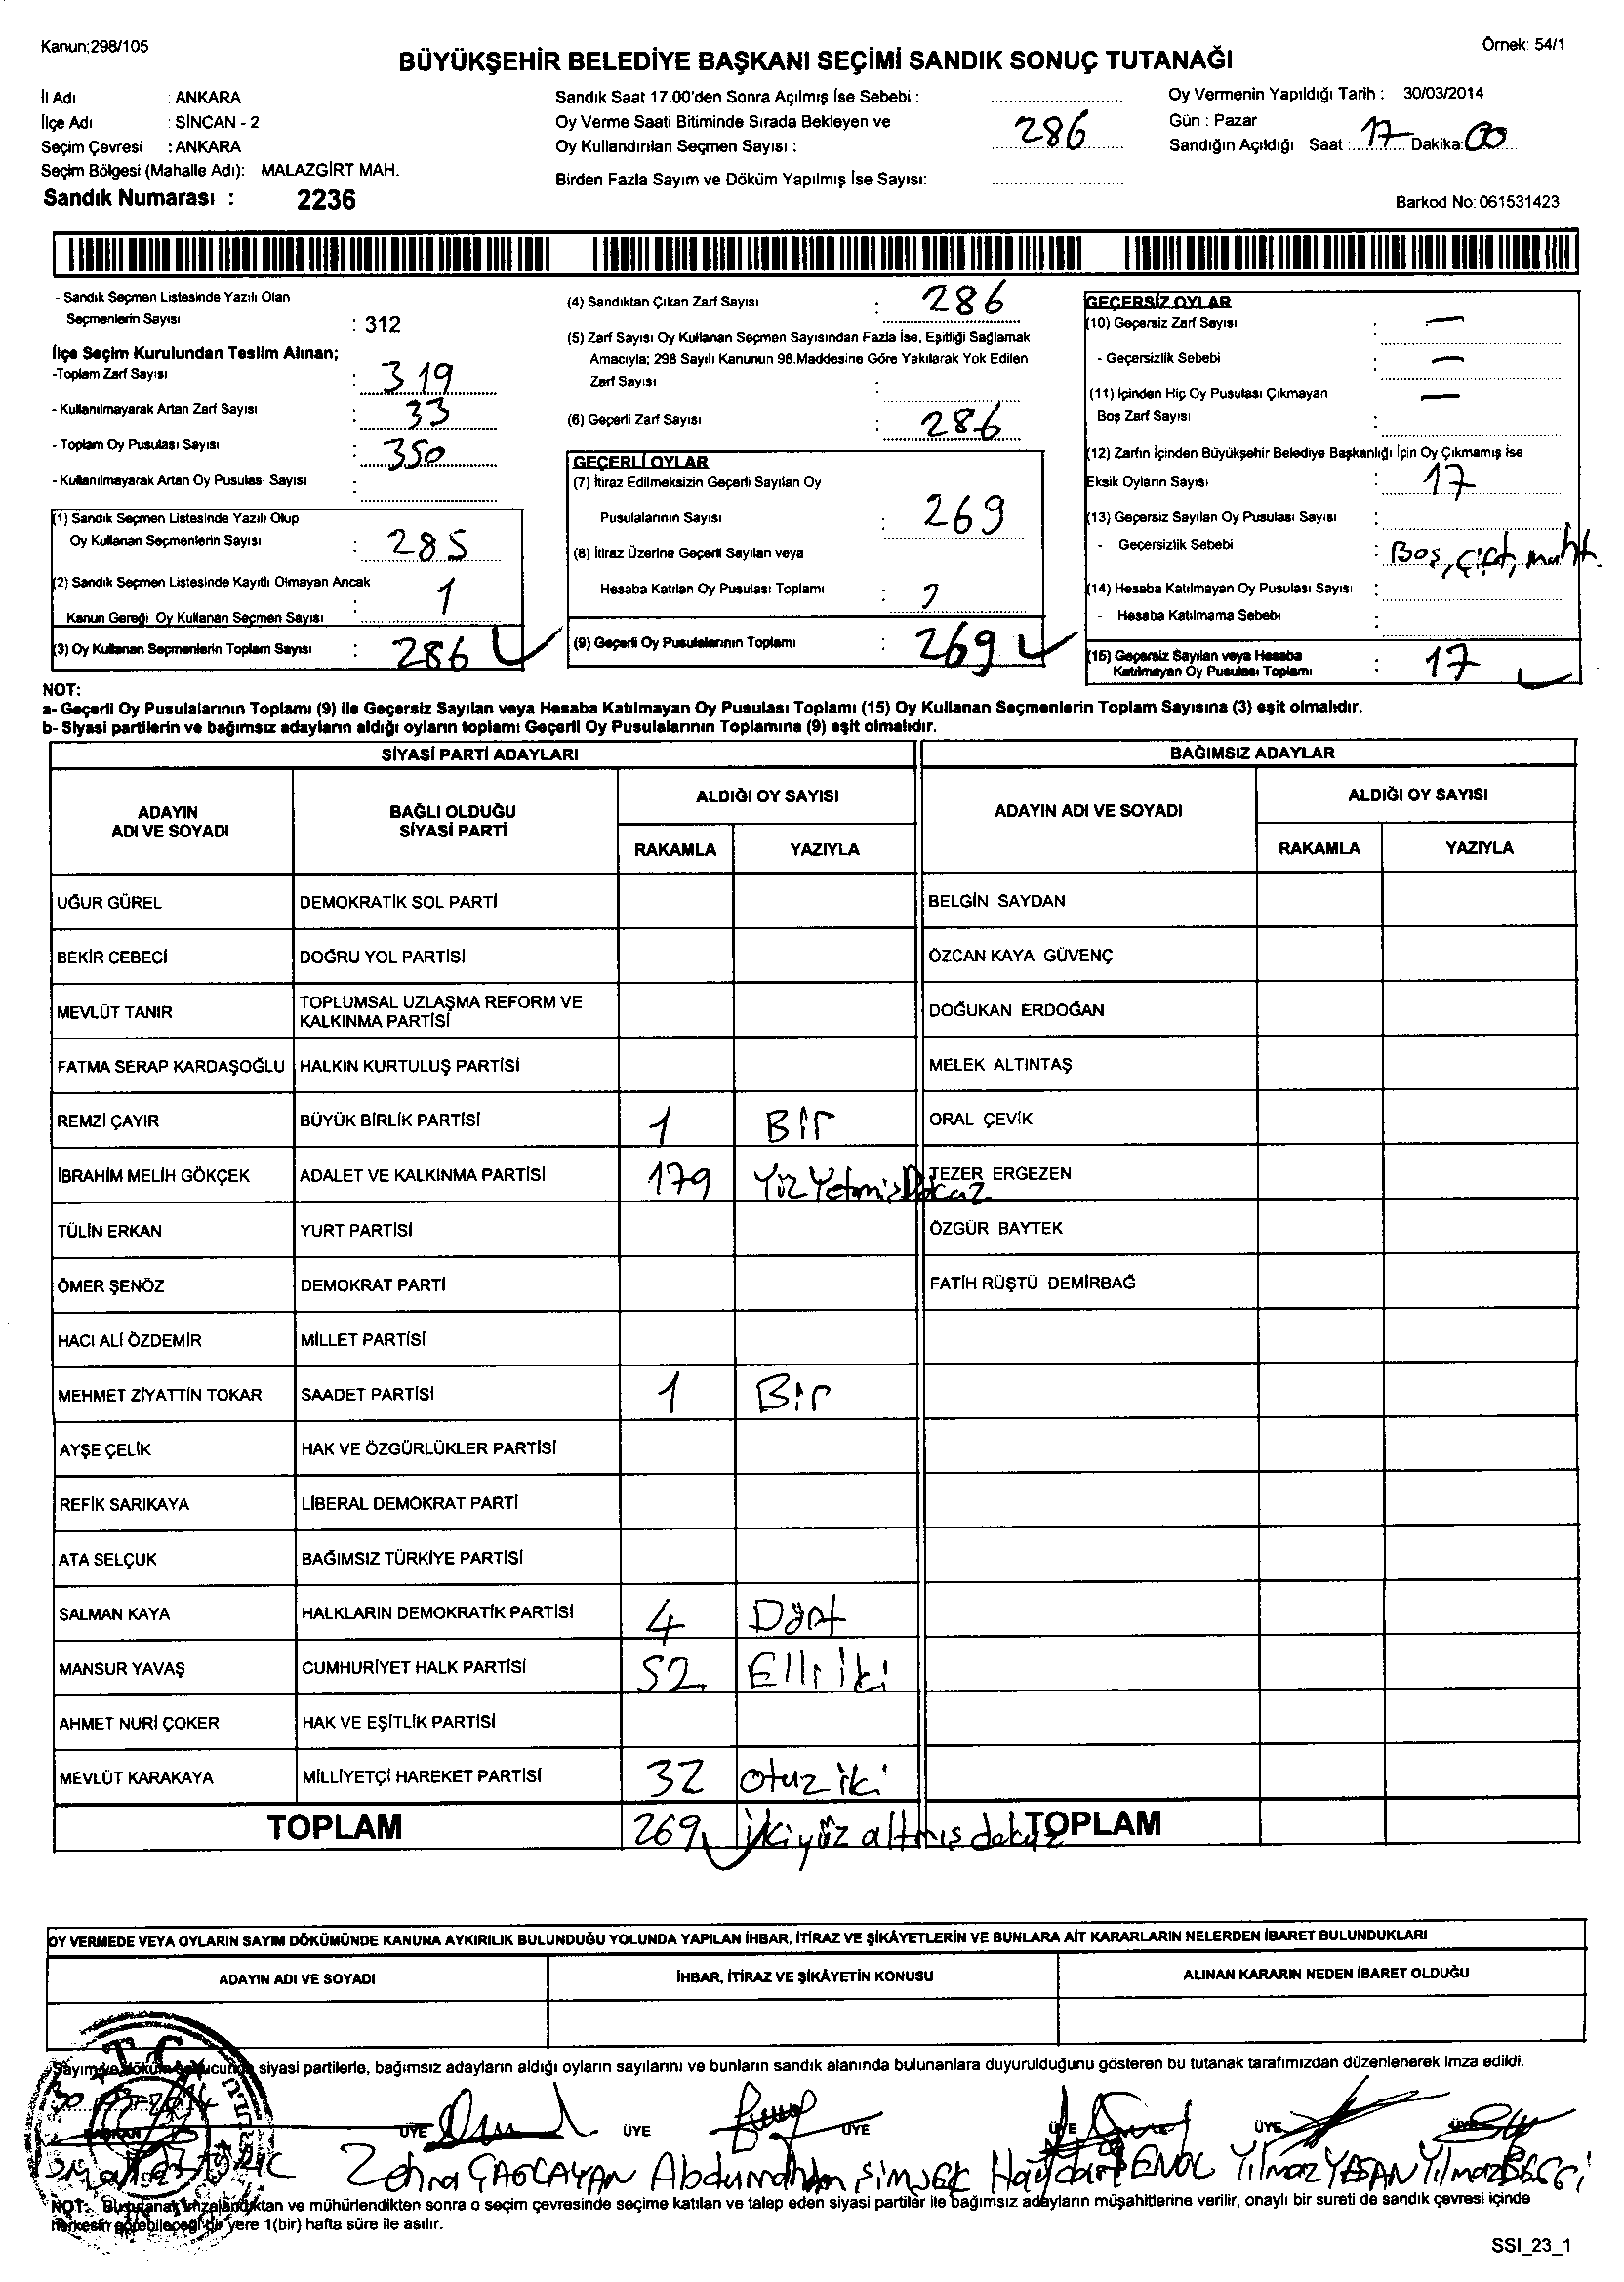 Kanun;298/105
Örnek: 54/1
BÜYÜKŞEHİR BELEDİYE BAŞKANI SEÇİMİ SANDIK SONUÇ TUTANAĞI
İl Adı : ANKARA
İlçe Adı : SİNCAN - 2
Seçim Çevresi : ANKARA
Seçim Bölgesi (Mahalle Adı): MALAZGİRT MAH.
Sandık Numarası : 2236
Sandık Saat 17.00'den Sonra Açılmış İse Sebebi :
Oy Verme Saati Bitiminde Sırada Bekleyen ve
Oy Kullandırılan Seçmen Sayısı : 286
Birden Fazla Sayım ve Döküm Yapılmış İse Sayısı:
Oy Vermenin Yapıldığı Tarih : 30/03/2014
Gün : Pazar
Sandığın Açıldığı Saat : 17 Dakika: 00
Barkod No: 061531423
- Sandık Seçmen Listesinde Yazılı Olan
Seçmenlerin Sayısı : 312
İlçe Seçim Kurulundan Teslim Alınan;
-Toplam Zarf Sayısı : 319
- Kullanılmayarak Artan Zarf Sayısı : 33
- Toplam Oy Pusulası Sayısı : 350
- Kullanılmayarak Artan Oy Pusulası Sayısı :
(1) Sandık Seçmen Listesinde Yazılı Olup
Oy Kullanan Seçmenlerin Sayısı : 285
(2) Sandık Seçmen Listesinde Kayıtlı Olmayan Ancak
Kanun Gereği Oy Kullanan Seçmen Sayısı : 1
(3) Oy Kullanan Seçmenlerin Toplam Sayısı : 286
(4) Sandıktan Çıkan Zarf Sayısı : 286
(5) Zarf Sayısı Oy Kullanan Seçmen Sayısından Fazla İse, Eşitliği Sağlamak
Amacıyla; 298 Sayılı Kanunun 98.Maddesine Göre Yakılarak Yok Edilen
Zarf Sayısı :
(6) Geçerli Zarf Sayısı : 286
GEÇERLİ OYLAR
(7) İtiraz Edilmeksizin Geçerli Sayılan Oy
Pusulalarının Sayısı : 269
(8) İtiraz Üzerine Geçerli Sayılan veya
Hesaba Katılan Oy Pusulası Toplamı :
(9) Geçerli Oy Pusulalarının Toplamı : 269
GEÇERSİZ OYLAR
(10) Geçersiz Zarf Sayısı : —
- Geçersizlik Sebebi : —
(11) İçinden Hiç Oy Pusulası Çıkmayan —
Boş Zarf Sayısı :
(12) Zarfın İçinden Büyükşehir Belediye Başkanlığı İçin Oy Çıkmamış ise
Eksik Oyların Sayısı : 17
(13) Geçersiz Sayılan Oy Pusulası Sayısı :
- Geçersizlik Sebebi : Boş, çift,
(14) Hesaba Katılmayan Oy Pusulası Sayısı :
- Hesaba Katılmama Sebebi :
(15) Geçersiz Sayılan veya Hesaba
Katılmayan Oy Pusulası Toplamı : 17
NOT:
a- Geçerli Oy Pusulalarının Toplamı (9) ile Geçersiz Sayılan veya Hesaba Katılmayan Oy Pusulası Toplamı (15) Oy Kullanan Seçmenlerin Toplam Sayısına (3) eşit olmalıdır.
b- Siyasi partilerin ve bağımsız adayların aldığı oyların toplamı Geçerli Oy Pusulalarının Toplamına (9) eşit olmalıdır.
SİYASİ PARTİ ADAYLARI
BAĞIMSIZ ADAYLAR
ADAYIN ADI VE SOYADI
BAĞLI OLDUĞU SİYASİ PARTİ
ALDIĞI OY SAYISI
RAKAMLA YAZIYLA
ADAYIN ADI VE SOYADI
ALDIĞI OY SAYISI
RAKAMLA YAZIYLA
UĞUR GÜREL DEMOKRATİK SOL PARTİ BELGİN SAYDAN
BEKİR CEBECİ DOĞRU YOL PARTİSİ ÖZCAN KAYA GÜVENÇ
MEVLÜT TANIR TOPLUMSAL UZLAŞMA REFORM VE KALKINMA PARTİSİ DOĞUKAN ERDOĞAN
FATMA SERAP KARDAŞOĞLU HALKIN KURTULUŞ PARTİSİ MELEK ALTINTAŞ
REMZİ ÇAYIR BÜYÜK BİRLİK PARTİSİ 1 Bir ORAL ÇEVİK
İBRAHİM MELİH GÖKÇEK ADALET VE KALKINMA PARTİSİ 179 Yüz Yetmiş Dokuz TEZER ERGEZEN
TÜLİN ERKAN YURT PARTİSİ ÖZGÜR BAYTEK
ÖMER ŞENÖZ DEMOKRAT PARTİ FATİH RÜŞTÜ DEMİRBAĞ
HACI ALİ ÖZDEMİR MİLLET PARTİSİ
MEHMET ZİYATTİN TOKAR SAADET PARTİSİ 1 Bir
AYŞE ÇELİK HAK VE ÖZGÜRLÜKLER PARTİSİ
REFİK SARIKAYA LİBERAL DEMOKRAT PARTİ
ATA SELÇUK BAĞIMSIZ TÜRKİYE PARTİSİ
SALMAN KAYA HALKLARIN DEMOKRATİK PARTİSİ 4 Dört
MANSUR YAVAŞ CUMHURİYET HALK PARTİSİ 52 Elli iki
AHMET NURİ ÇOKER HAK VE EŞİTLİK PARTİSİ
MEVLÜT KARAKAYA MİLLİYETÇİ HAREKET PARTİSİ 32 otuz iki
TOPLAM 269 ikiyüz altmış dokuz TOPLAM
OY VERMEDE VEYA OYLARIN SAYIM DÖKÜMÜNDE KANUNA AYKIRILIK BULUNDUĞU YOLUNDA YAPILAN İHBAR, İTİRAZ VE ŞİKÂYETLERİN VE BUNLARA AİT KARARLARIN NELERDEN İBARET BULUNDUKLARI
ADAYIN ADI VE SOYADI İHBAR, İTİRAZ VE ŞİKÂYETİN KONUSU ALINAN KARARIN NEDEN İBARET OLDUĞU
Sayım ve döküm sonucunda siyasi partilerle, bağımsız adayların aldığı oyların sayılarını ve bunların sandık alanında bulunanlara duyurulduğunu gösteren bu tutanak tarafımızdan düzenlenerek imza edildi.
BAŞKAN ÜYE ÜYE ÜYE ÜYE ÜYE ÜYE
Zehra ÇAĞLAYAN Abdurrahim Şimşek Haydar ŞENOL Yılmaz YAŞAN Yılmaz
NOT: Bu tutanak imzalandıktan ve mühürlendikten sonra o seçim çevresinde seçime katılan ve talep eden siyasi partiler ile bağımsız adayların müşahitlerine verilir, onaylı bir sureti de sandık çevresi içinde
herkesin görebileceği bir yere 1(bir) hafta süre ile asılır.
SSI_23_1